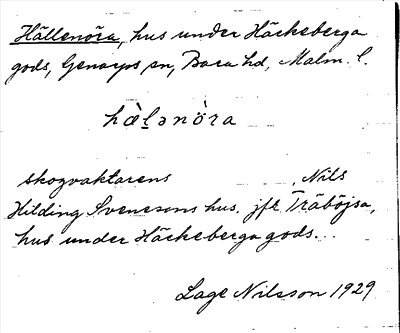 Hällenöra, hus under Häckeberga
gods, Genarps sn, Bara hd, Malm. l.
hæ̀l̠ənö̀ra
skogvaktarens Nils
Hilding Svenssons hus. jfr Träböjsa,
hus under Häckeberga gods...
Lage Nilsson 1929